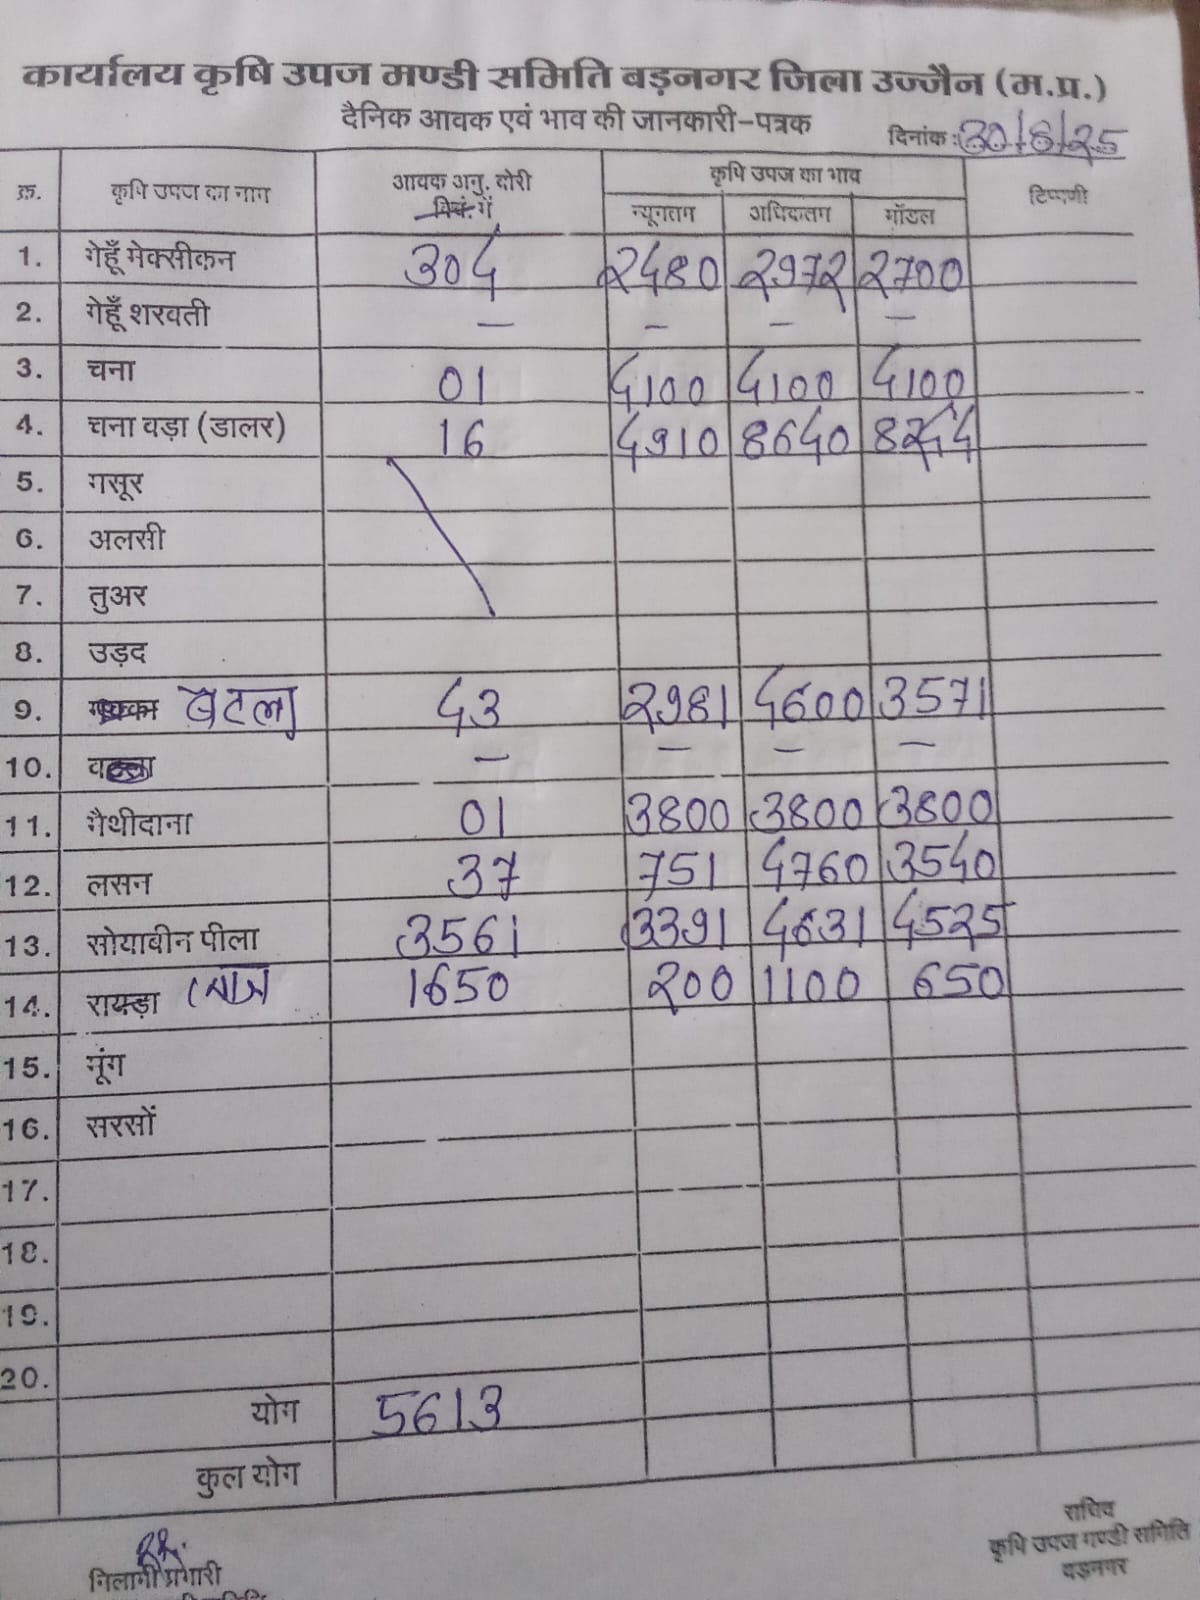 कार्यालय कृषि उपज मण्डी समिति बड़नगर जिला उज्जैन (म.प्र.)
दैनिक आवक एवं भाव की जानकारी-पत्रक
दिनांक: 30/8/25
क्र. कृषि उपज का नाम आवक अनु. बोरी कृषि उपज का भाव टिप्पणी
में न्यूनतम अधिकतम मॉडल
1. गेहूँ मेक्सीकन 304 2480 2972 2700
2. गेहूँ शरवती – – – –
3. चना 01 4100 4100 4100
4. चना बड़ा (डालर) 16 4910 8640 8244
5. मसूर
6. अलसी
7. तुअर
8. उड़द
9. बटला 43 2981 4600 3571
10. – – – –
11. मैथीदाना 01 3800 3800 3800
12. लसन 37 751 4760 3540
13. सोयाबीन पीला 3561 3391 4631 4525
14. रायड़ा 1650 200 1100 650
15. मूंग
16. सरसों
17.
18.
19.
20.
योग 5613
कुल योग
निलामी प्रभारी
सचिव
कृषि उपज मण्डी समिति
बड़नगर